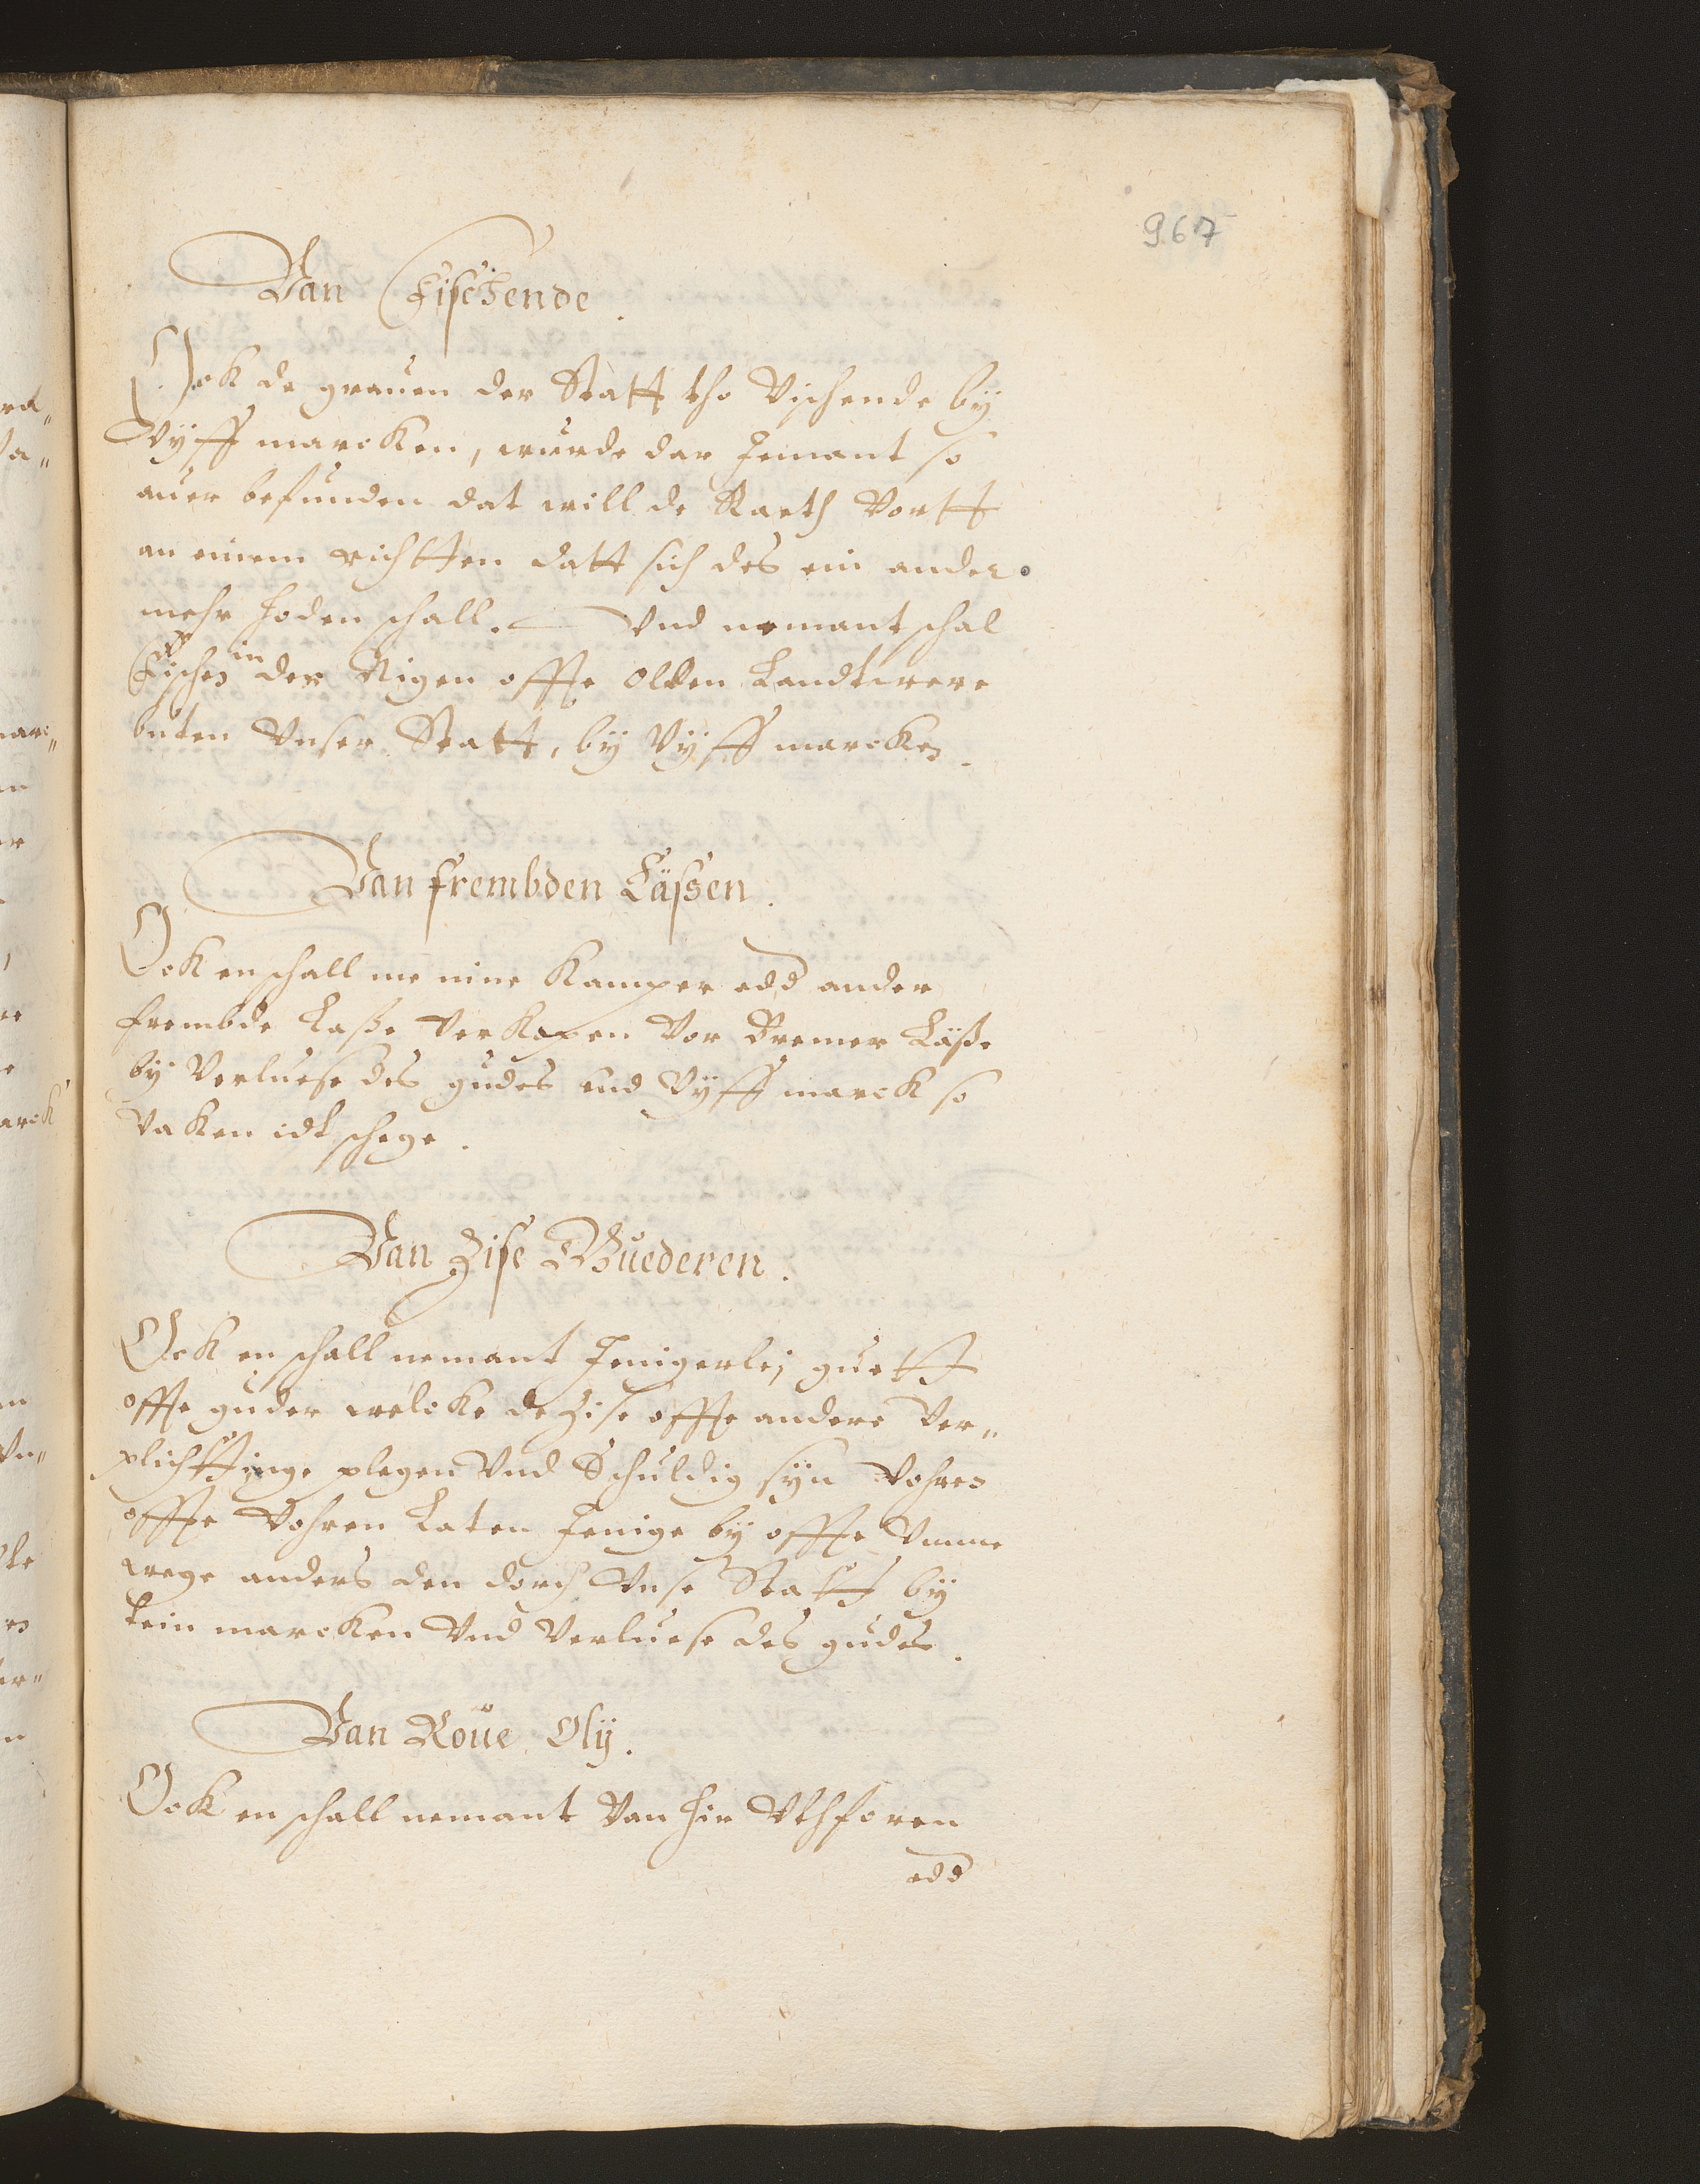 967
Van Fischende.
Ock de grauen der Statt tho Vischende bÿ
Vÿff marcken, wurde dar Jemant so
auer befunden dat will de Raeth Vortt
an einem richtten datt sich des ein ander
mehr hoden schall. Und nemant schal
Fischen in der Nigen offte olden Landtwere
buten Unser Statt, bÿ Vÿff marcken.
Van frembden Lässen.
Ock en schall me nine Kamper edd ander
frembde Lasse Verkopen Vor Bremer Lässe
bÿ Verluese des gudes und Vÿff marck so
Vaken idt schege.
Van Zise Guederen.
Ock en schall nemant Jenigerley guett
offte guder welcke de Zise offte andere Ver„
plichttinge plegen Und Schuldig sÿn Vohren
offte Vohren Laten Jenige bÿ offte Umme
wege anders den dorch Unse Statt bÿ
tein marcken Und Verluese des gudes.
Van Roue Olÿ.
Ock en schall nemant Van hir Uthforen
edd